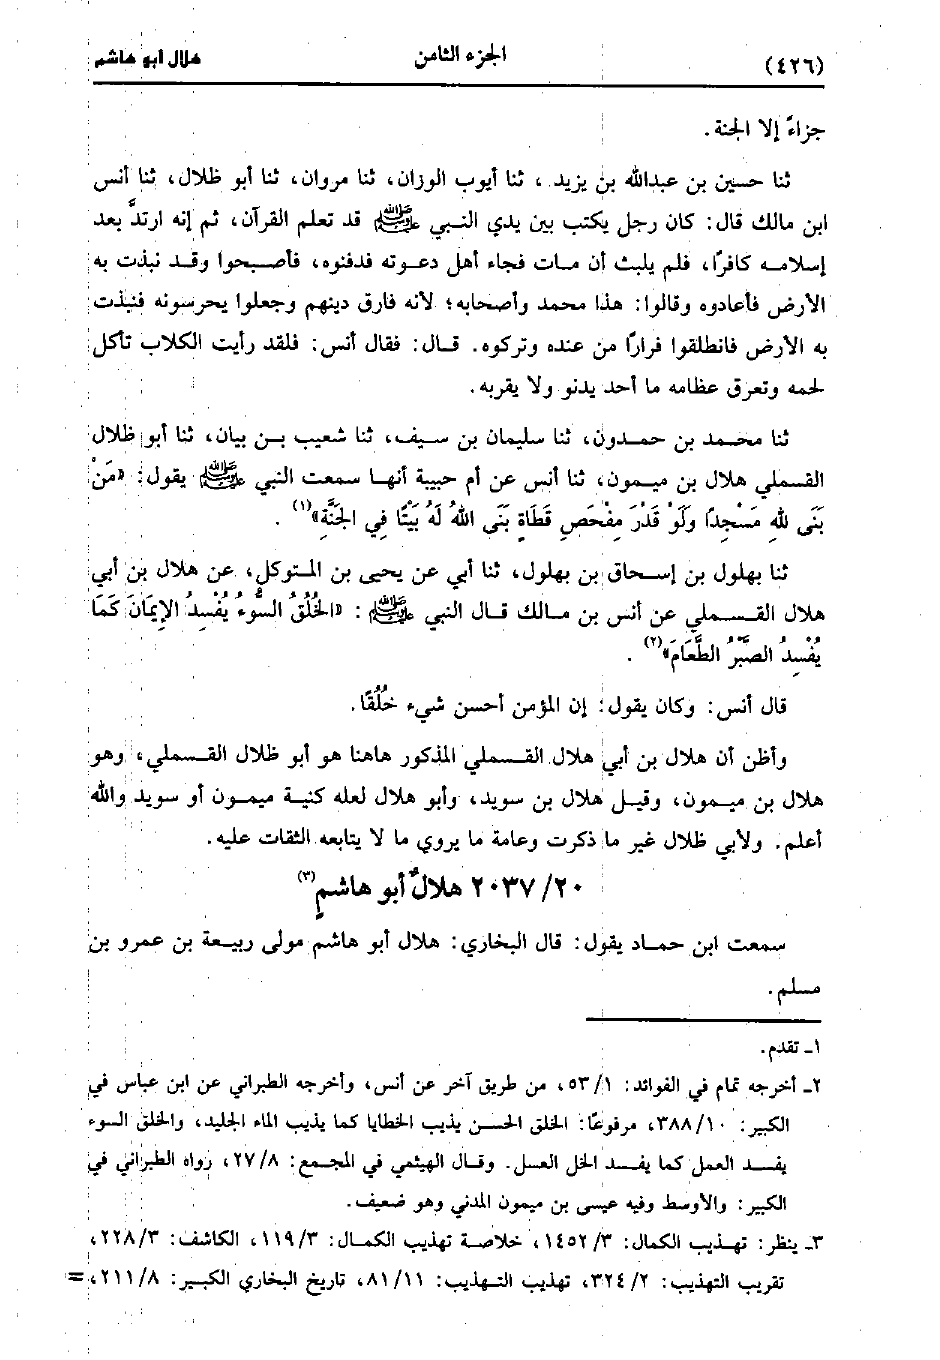 (٤٢٦) الجزء الثامن هلال أبو هاشم
جزاءً إلا الجنة.
ثنا حسين بن عبدالله بن يزيد ، ثنا أيوب الوزان، ثنا مروان، ثنا أبو ظلال، ثنا أنس
ابن مالك قال: كان رجل يكتب بين يدي النبي ﷺ قد تعلم القرآن، ثم إنه ارتدَّ بعد
إسلامه كافرًا، فلم يلبث أن مات فجاء أهل دعوته فدفنوه، فأصبحوا وقد نبذت به
الأرض فأعادوه وقالوا: هذا محمد وأصحابه؛ لأنه فارق دينهم وجعلوا يحرسونه فنبذت
به الأرض فانطلقوا فرارًا من عنده وتركوه. قال: فقال أنس: فلقد رأيت الكلاب تأكل
لحمه وتعرق عظامه ما أحد يدنو ولا يقربه.
ثنا محمد بن حمدون، ثنا سليمان بن سيف، ثنا شعيب بن بيان، ثنا أبو ظلال
القسملي هلال بن ميمون، ثنا أنس عن أم حبيبة أنها سمعت النبي ﷺ يقول: «مَنْ
بَنَى للهِ مَسْجِدًا وَلَوْ قَدْرَ مِفْحَصِ قَطَاةٍ بَنَى اللهُ لَهُ بَيْتًا فِي الجَنَّةِ»(١) .
ثنا بهلول بن إسحاق بن بهلول، ثنا أبي عن يحيى بن المتوكل، عن هلال بن أبي
هلال القسملي عن أنس بن مالك قال النبي ﷺ : «الخُلُقُ السُّوءُ يُفْسِدُ الإِيمَانَ كَمَا
يُفْسِدُ الصَّبْرُ الطَّعَامَ»(٢) .
قال أنس: وكان يقول: إن المؤمن أحسن شيء خُلُقًا.
وأظن أن هلال بن أبي هلال القسملي المذكور هاهنا هو أبو ظلال القسملي، وهو
هلال بن ميمون، وقيل هلال بن سويد، وأبو هلال لعله كنية ميمون أو سويد والله
أعلم. ولأبي ظلال غير ما ذكرت وعامة ما يروي ما لا يتابعه الثقات عليه.
٢٠/ ٢٠٣٧ هلالٌ أبو هاشمٍ(٣)
سمعت ابن حماد يقول: قال البخاري: هلال أبو هاشم مولى ربيعة بن عمرو بن
مسلم.
١ـ تقدم.
٢ـ أخرجه تمام في الفوائد: ١/ ٥٣، من طريق آخر عن أنس، وأخرجه الطبراني عن ابن عباس في
الكبير: ١٠/ ٣٨٨، مرفوعًا: الخلق الحسن يذيب الخطايا كما يذيب الماء الجليد، والخلق السوء
يفسد العمل كما يفسد الخل العسل. وقال الهيثمي في المجمع: ٨/ ٢٧، رواه الطبراني في
الكبير: والأوسط وفيه عيسى بن ميمون المدني وهو ضعيف.
٣ـ ينظر: تهذيب الكمال: ٣/ ١٤٥٢، خلاصة تهذيب الكمال: ٣/ ١١٩، الكاشف: ٣/ ٢٢٨،
تقريب التهذيب: ٢/ ٣٢٤، تهذيب التهذيب: ١١/ ٨١، تاريخ البخاري الكبير: ٨/ ٢١١، =